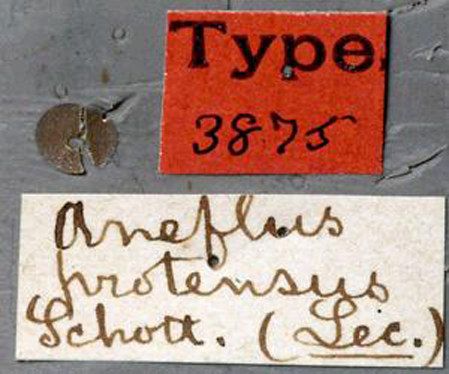 Type
3875
Aneflus
protensus
Schott. (Lec.)